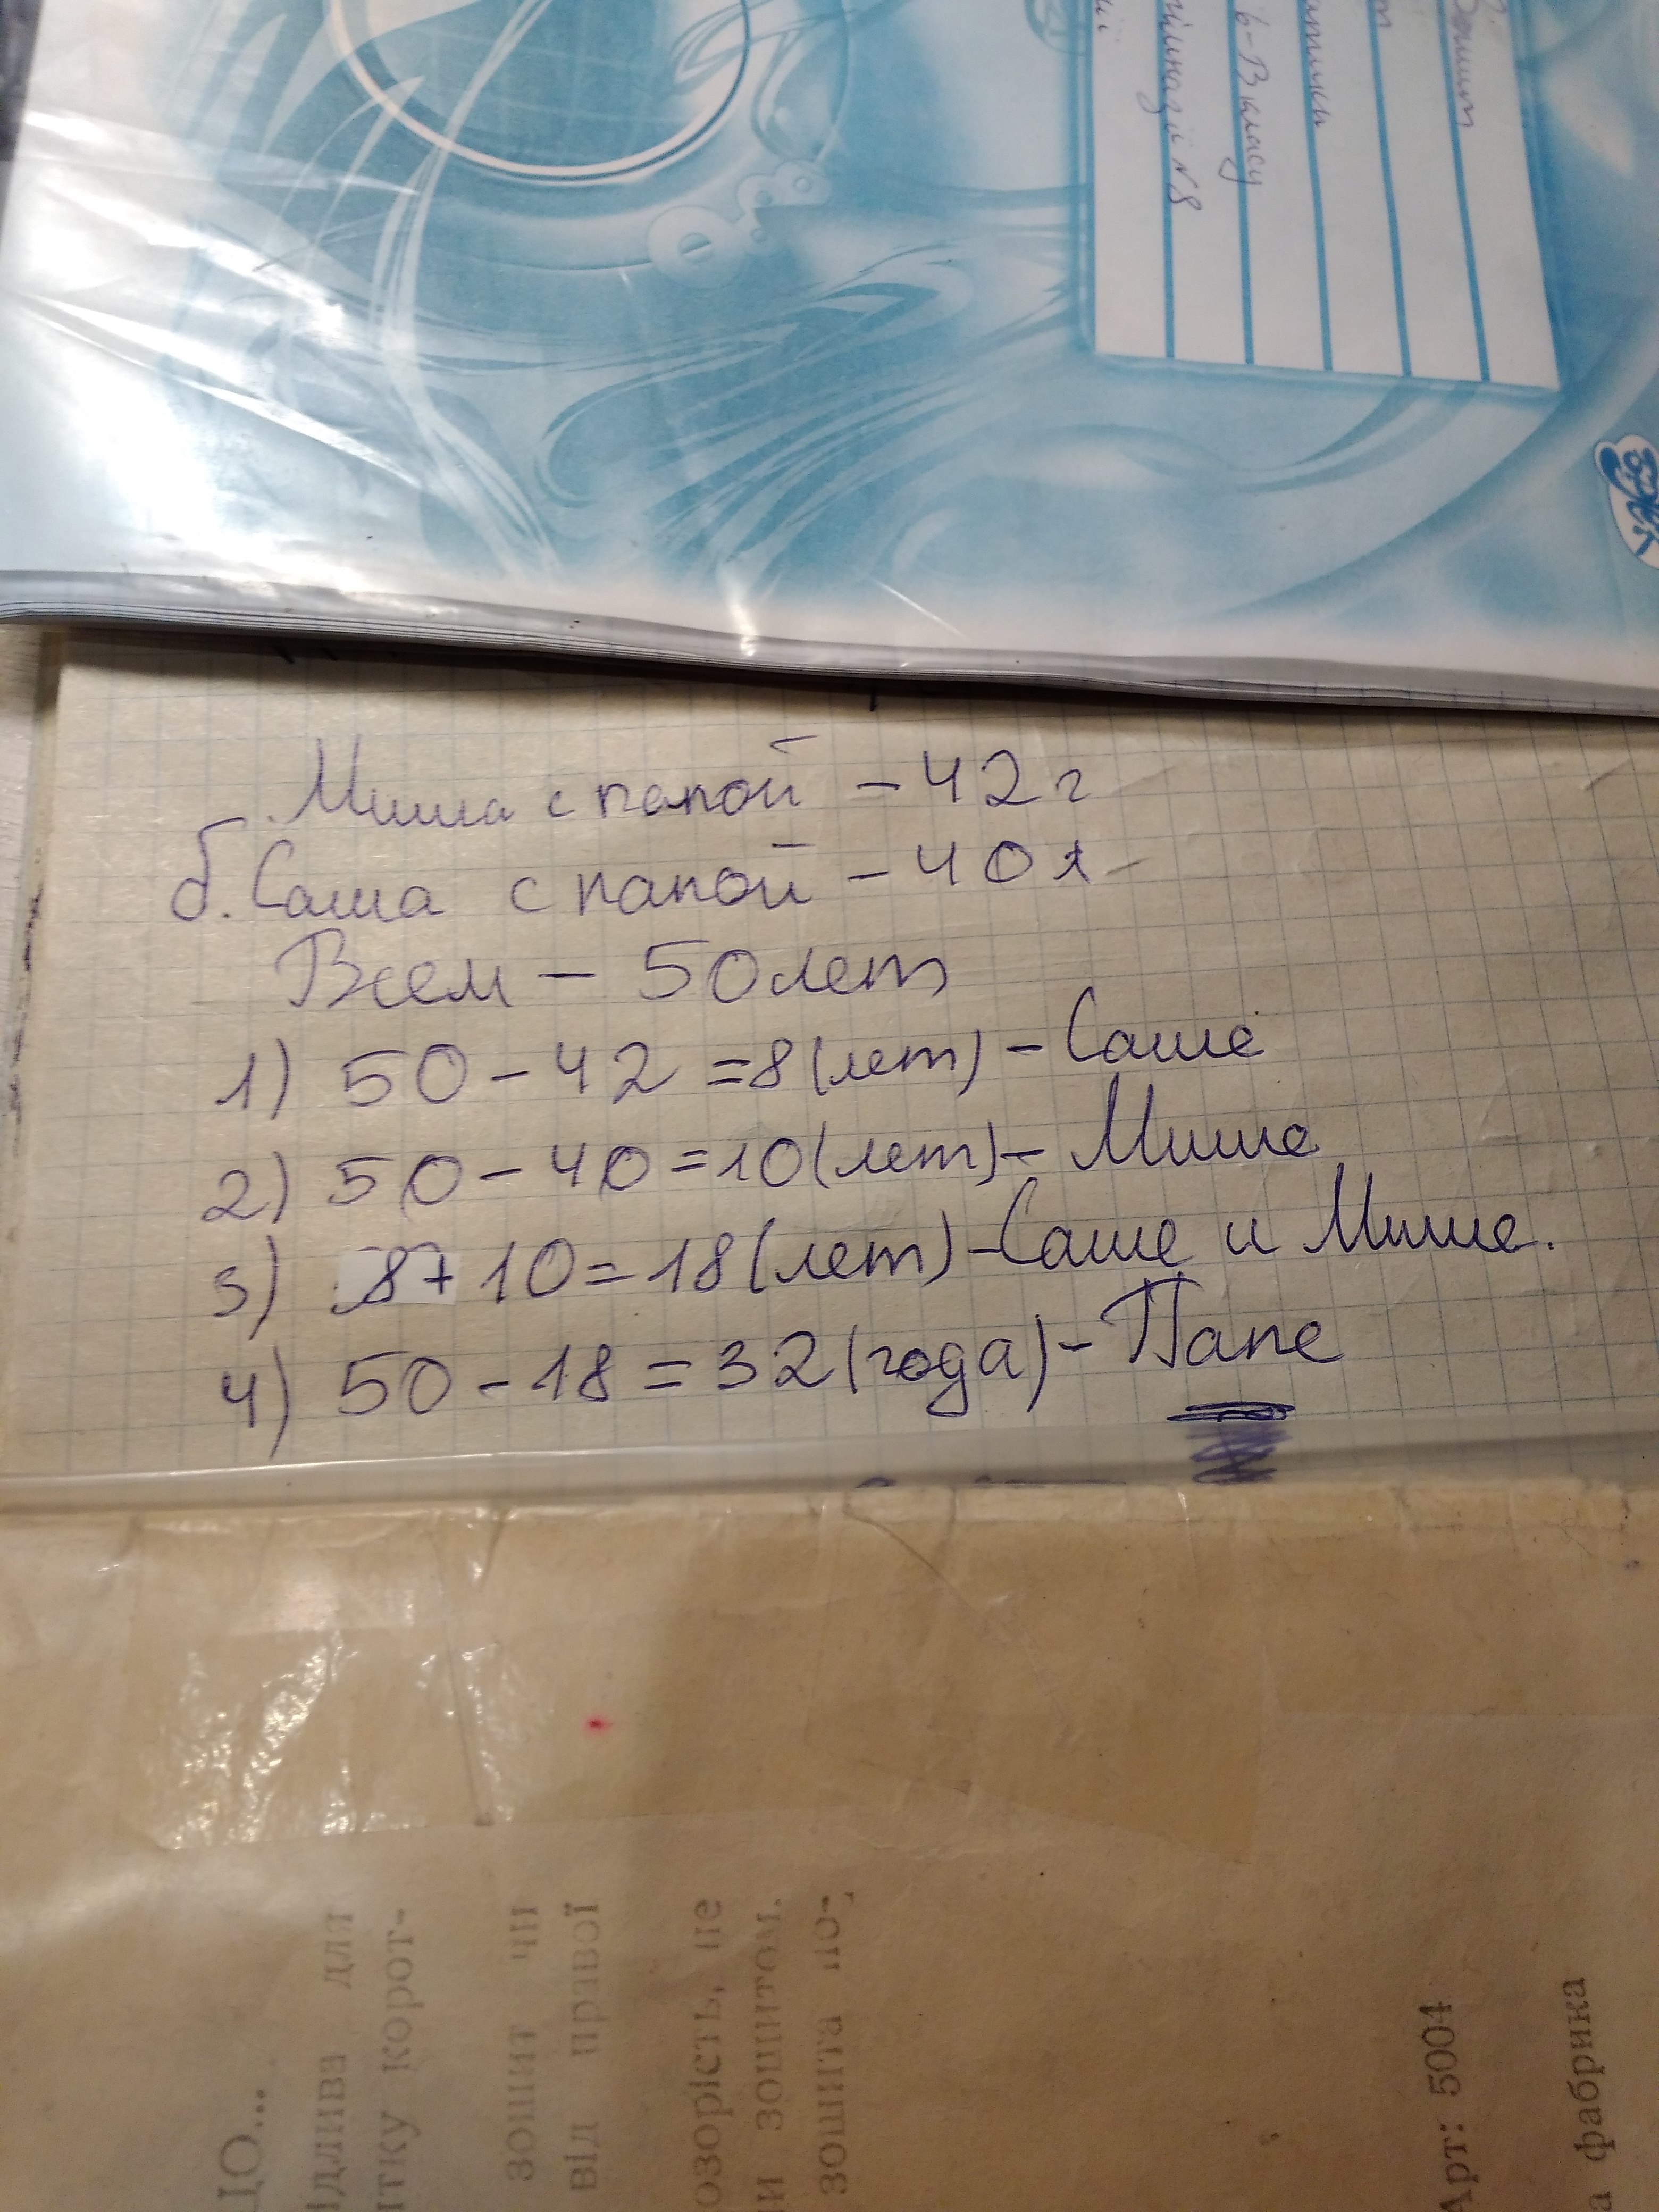 Зошит
6-В класу
гімназії №8
Миша с папой - 42 г
б. Саша с папой - 40 л
Всем - 50 лет
1) 50 - 42 = 8 (лет) - Саше
2) 50 - 40 = 10 (лет) - Мише
3) 8 + 10 = 18 (лет) - Саше и Мише.
4) 50 - 18 = 32 (года) - Папе
ЦО...
ідлива для
итку корот-
зошит чи
від правої
озорість, не
и зошитом.
зошита по-
Арт: 5004
а фабрика